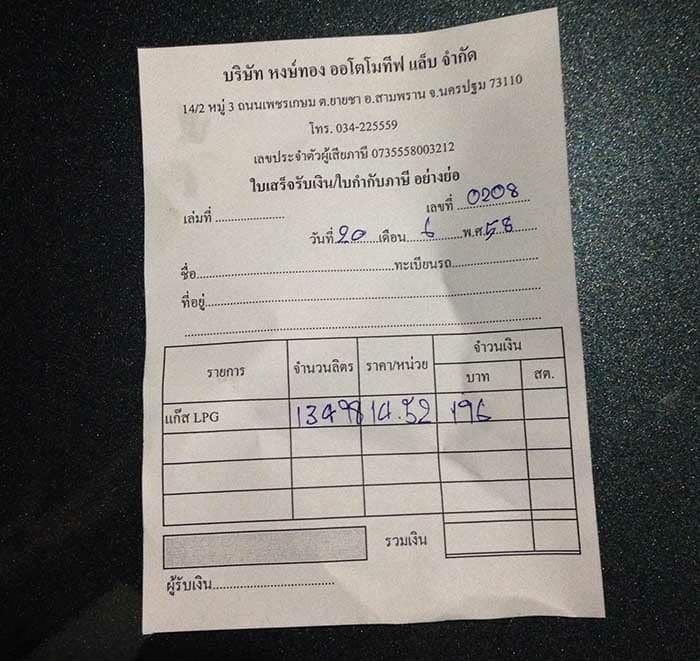 บริษัท หงษ์ทอง ออโตโมทีฟ แล็บ จำกัด
14/2 หมู่ 3 ถนนเพชรเกษม ต.ยายชา อ.สามพราน จ.นครปฐม 73110
โทร. 034-225559
เลขประจำตัวผู้เสียภาษี 0735558003212
ใบเสร็จรับเงิน/ใบกำกับภาษี อย่างย่อ
เล่มที่ ..................... เลขที่ 0208
วันที่ 20 เดือน 6 พ.ศ. 58
ชื่อ..................................................ทะเบียนรถ.....................
ที่อยู่.....................................................................................
รายการ จำนวนลิตร ราคา/หน่วย จำวนเงิน
บาท สต.
แก๊ส LPG 13498 14.52 196
รวมเงิน
ผู้รับเงิน...............................